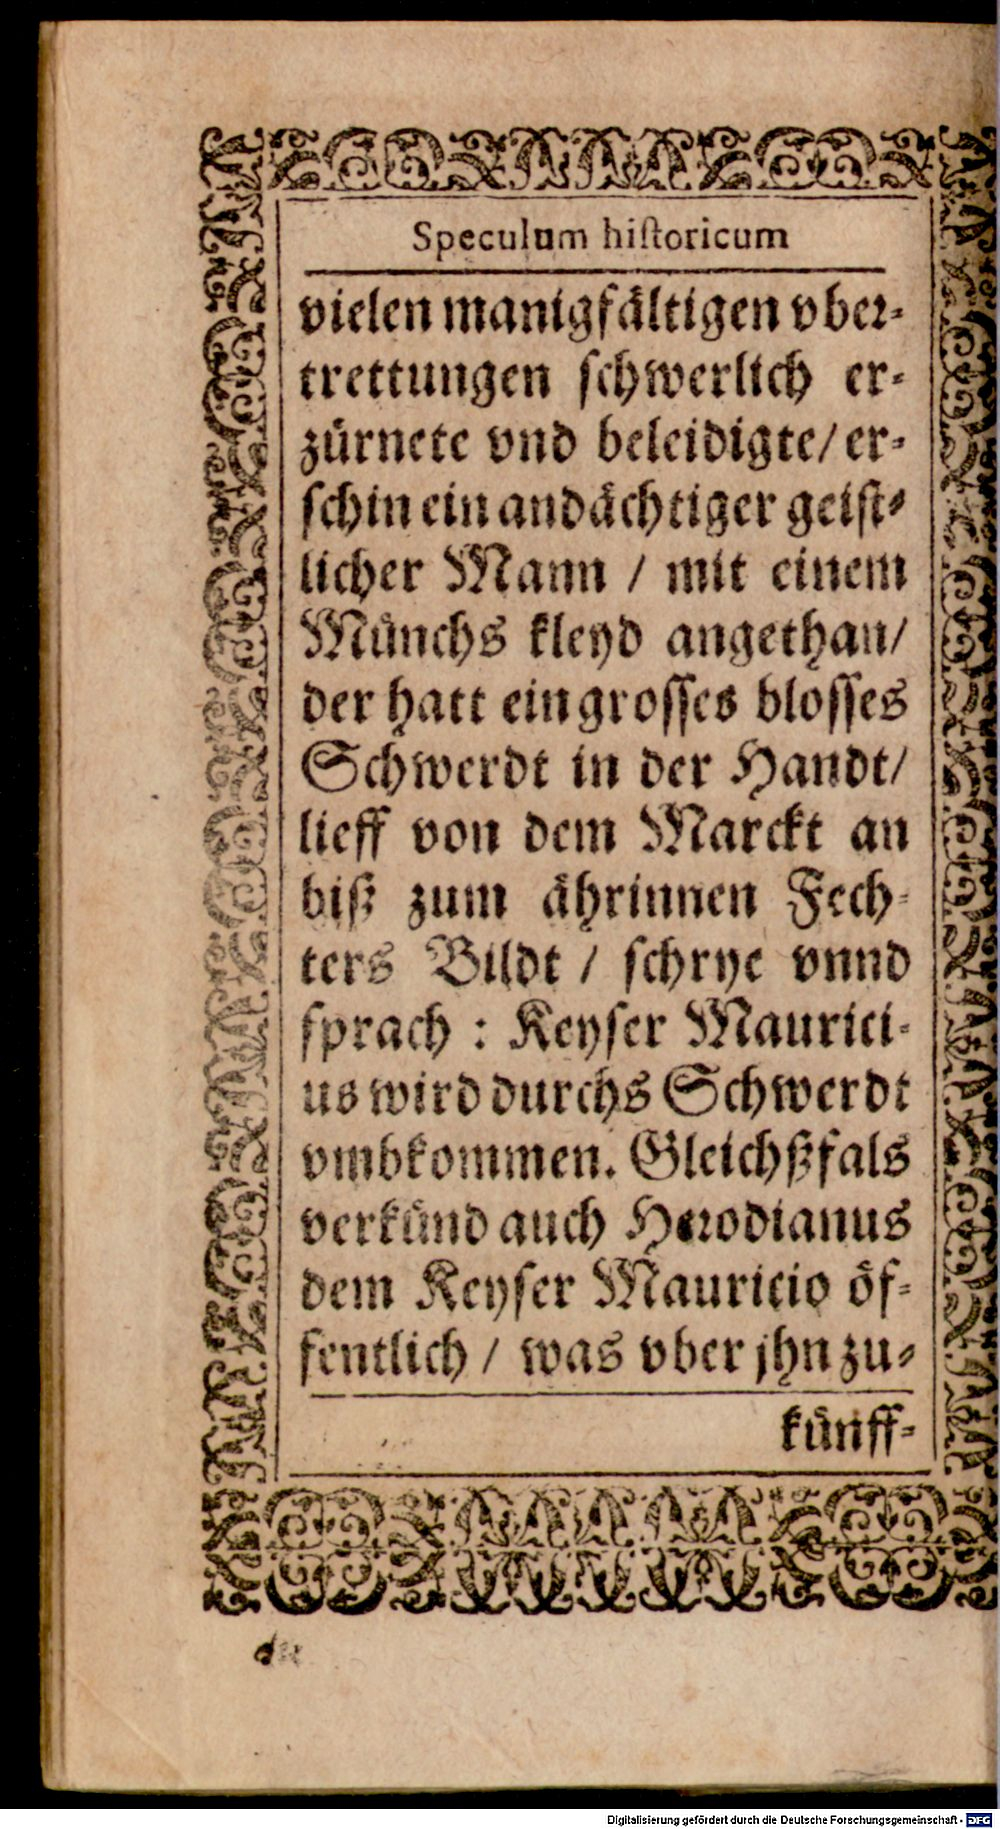 Speculum hiſtoricum
vielen manigfältigen vber-
trettungen ſchwerlich er-
zürnete vnd beleidigte/ er-
ſchin ein andächtiger geiſt-
licher Mann / mit einem
Münchs kleyd angethan/
der hatt ein groſſes bloſſes
Schwerdt in der Handt/
lieff von dem Marckt an
biß zum ährinnen Fech-
ters Bildt / ſchrye vnnd
ſprach : Keyſer Maurici-
us wird durchs Schwerdt
vmbkommen. Gleichßfals
verkünd auch Herodianus
dem Keyſer Mauricio öf-
fentlich / was vber jhn zu-
künff-
Digitalisierung gefördert durch die Deutsche Forschungsgemeinschaft - DFG